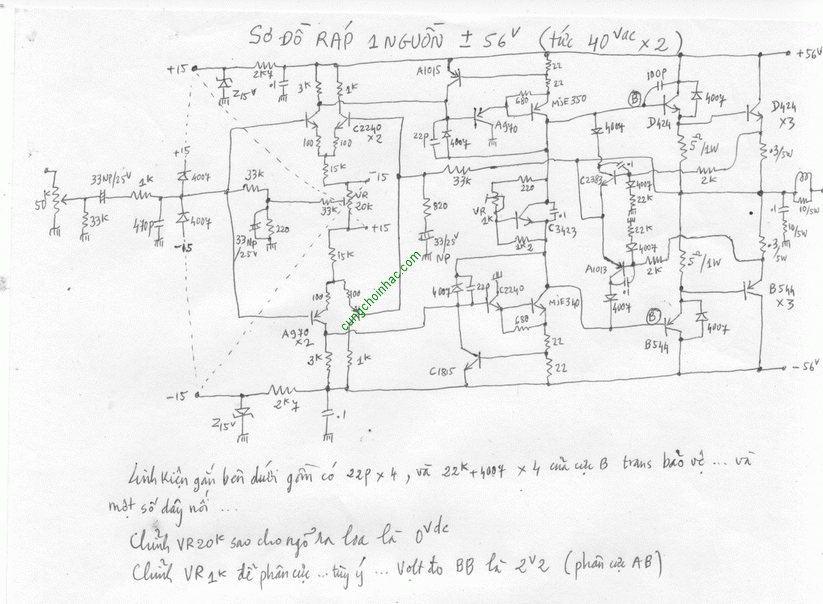 SƠ ĐỒ RÁP 1 NGUỒN ± 56V (tức 40Vac x 2)
+15
2K7
Z15V
.1
3K
1K
A1015
22
22
680
MJE350
A970
22P
4007
C2240
x2
100
100
15K
-15
VR
20K
+15
33K
15K
+56V
100P
B
D424
4007
D424
x3
5Ω/1W
.3/5W
2K
4007
C2383
.1
4007
22K
22K
4007
A1013
.1
2K
4007
5Ω/1W
.3/5W
.1
10/5W
10/5W
B544
x3
B
B544
4007
-56V
+15
4007
33NP/25V
1K
50K
33K
470P
4007
-15
33K
33NP
/25V
220
33K
820
33/25V
NP
220
VR
1K
.1
C3423
1K2
4007
22P
C2240
MJE340
680
22
22
C1815
100
100
A970
x2
3K
1K
-15
2K7
Z15V
.1
cungchoinhac.com
Linh Kiện gắn bên dưới gồm có 22P x 4, và 22K + 4007 x 4 của cực B trans bảo vệ ... và
một số dây nối ...
Chỉnh VR20K sao cho ngõ ra loa là 0Vdc
Chỉnh VR1K để phân cực ... tùy ý ... Volt đo BB là 2V2 (phân cực AB)